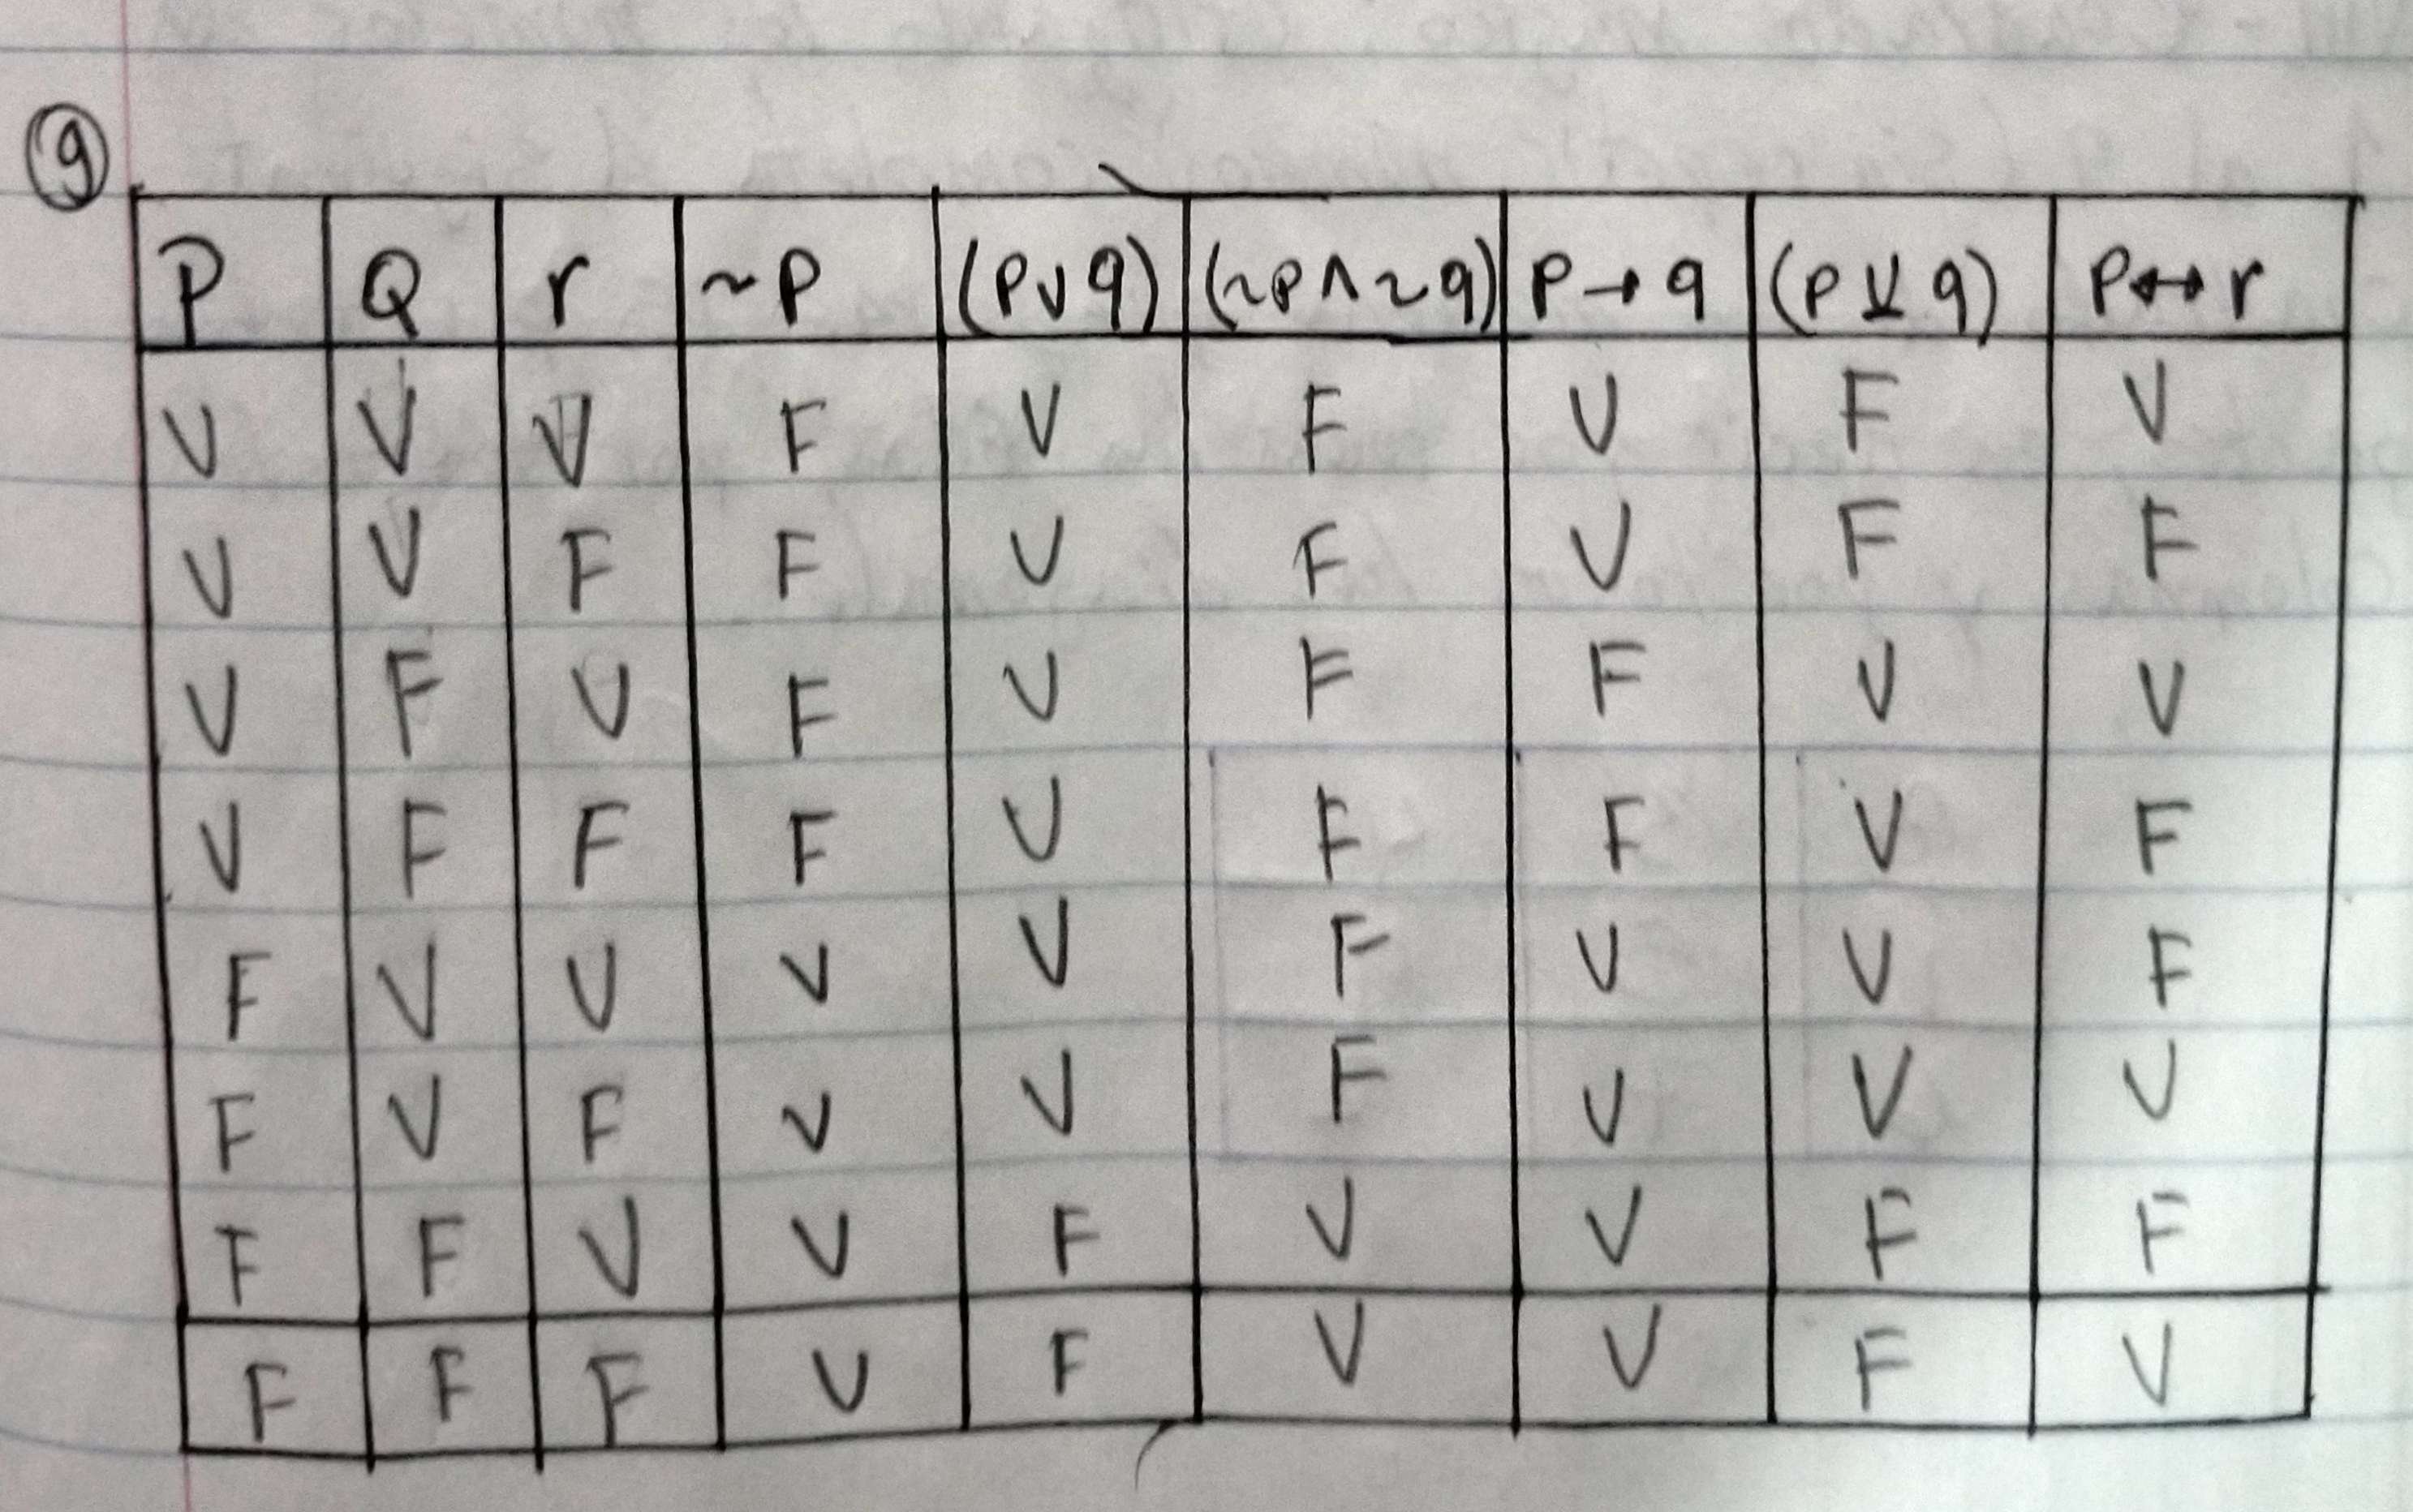 9
P Q r ~P (P∨q) (~P∧~q) P→q (P⊻q) P↔r
V V V F V F V F V
V V F F V F V F F
V F V F V F F V V
V F F F V F F V F
F V V V V F V V F
F V F V V F V V V
F F V V F V V F F
F F F V F V V F V